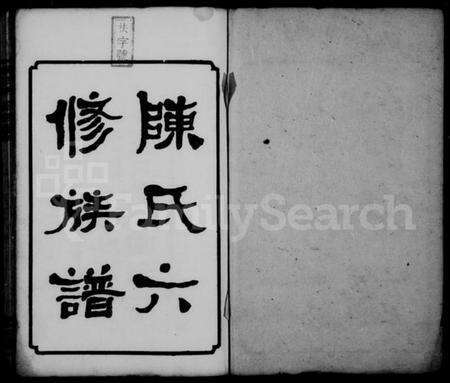 陳氏六
修族譜
FamilySearch